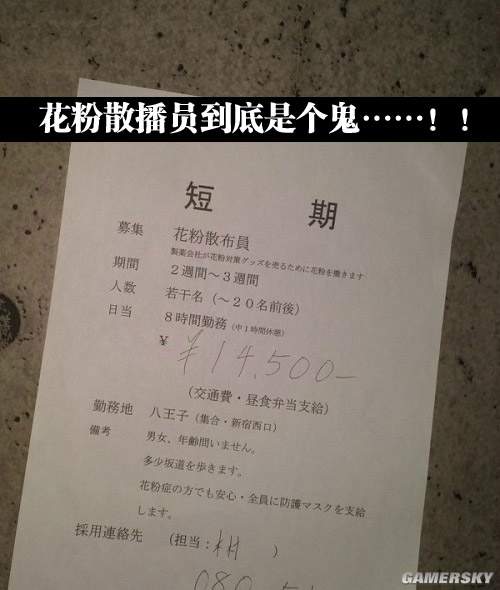 花粉散播员到底是个鬼……！！
短 期
募集 花粉散布員
製薬会社が花粉対策グッズを売るために花粉を撒きます
期間 2週間～3週間
人数 若干名（～20名前後）
日当 8時間勤務（中1時間休憩）
¥ ¥14,500-
（交通費・昼食弁当支給）
勤務地 八王子（集合・新宿西口）
備考 男女、年齢問いません。
多少坂道を歩きます。
花粉症の方でも安心・全員に防護マスクを支給
します。
採用連絡先 （担当： ）
080
GAMERSKY